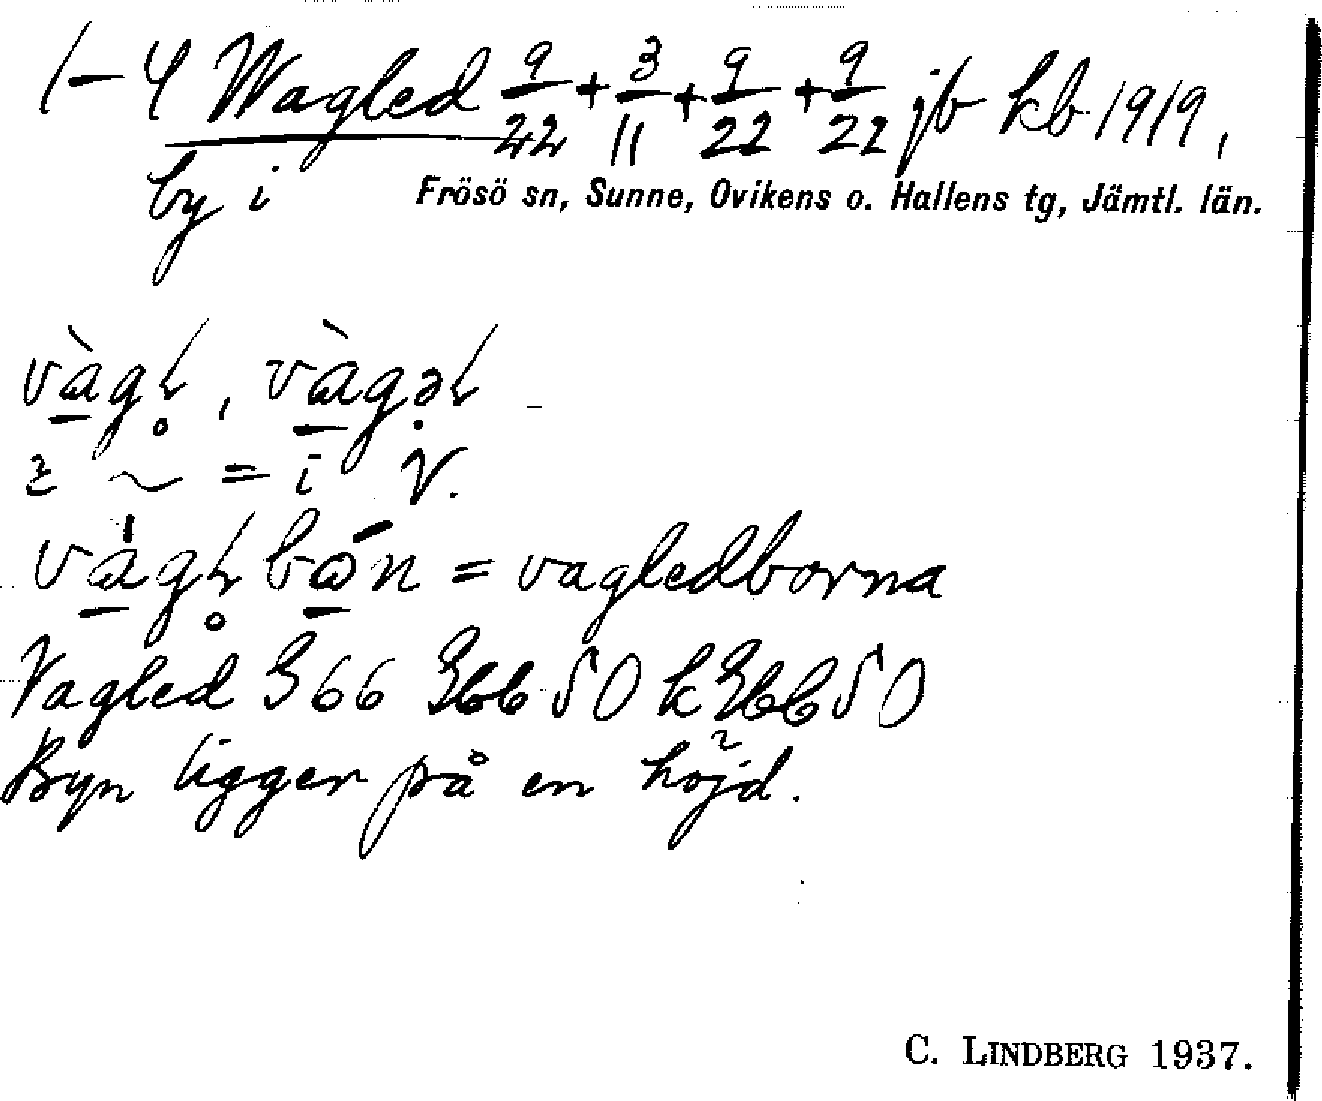 1–4 Wagled 9/22 + 3/11 + 9/22 + 9/22 jb kb 1919,
by i Frösö sn, Sunne, Ovikens o. Hallens tg, Jämtl. län.
= i V.
= vagledborna
Vagled 366 50 k 50
Byn ligger på en höjd.
C. LINDBERG 1937.